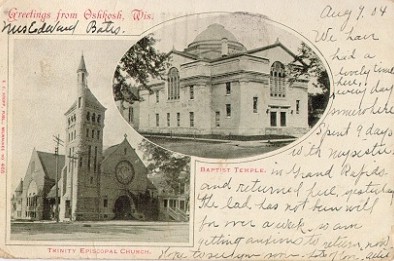 Greetings from Oshkosh, Wis.
Aug 9. 04
We have
had a
lovely time
here, every day
somewhere
Spent 9 days
with my sister
in Grand Rapids
and returned here yesterday
The lad has not been well
for over a week. so am
getting anxious to return now
Hope to see you soon.
BAPTIST TEMPLE.
TRINITY EPISCOPAL CHURCH.